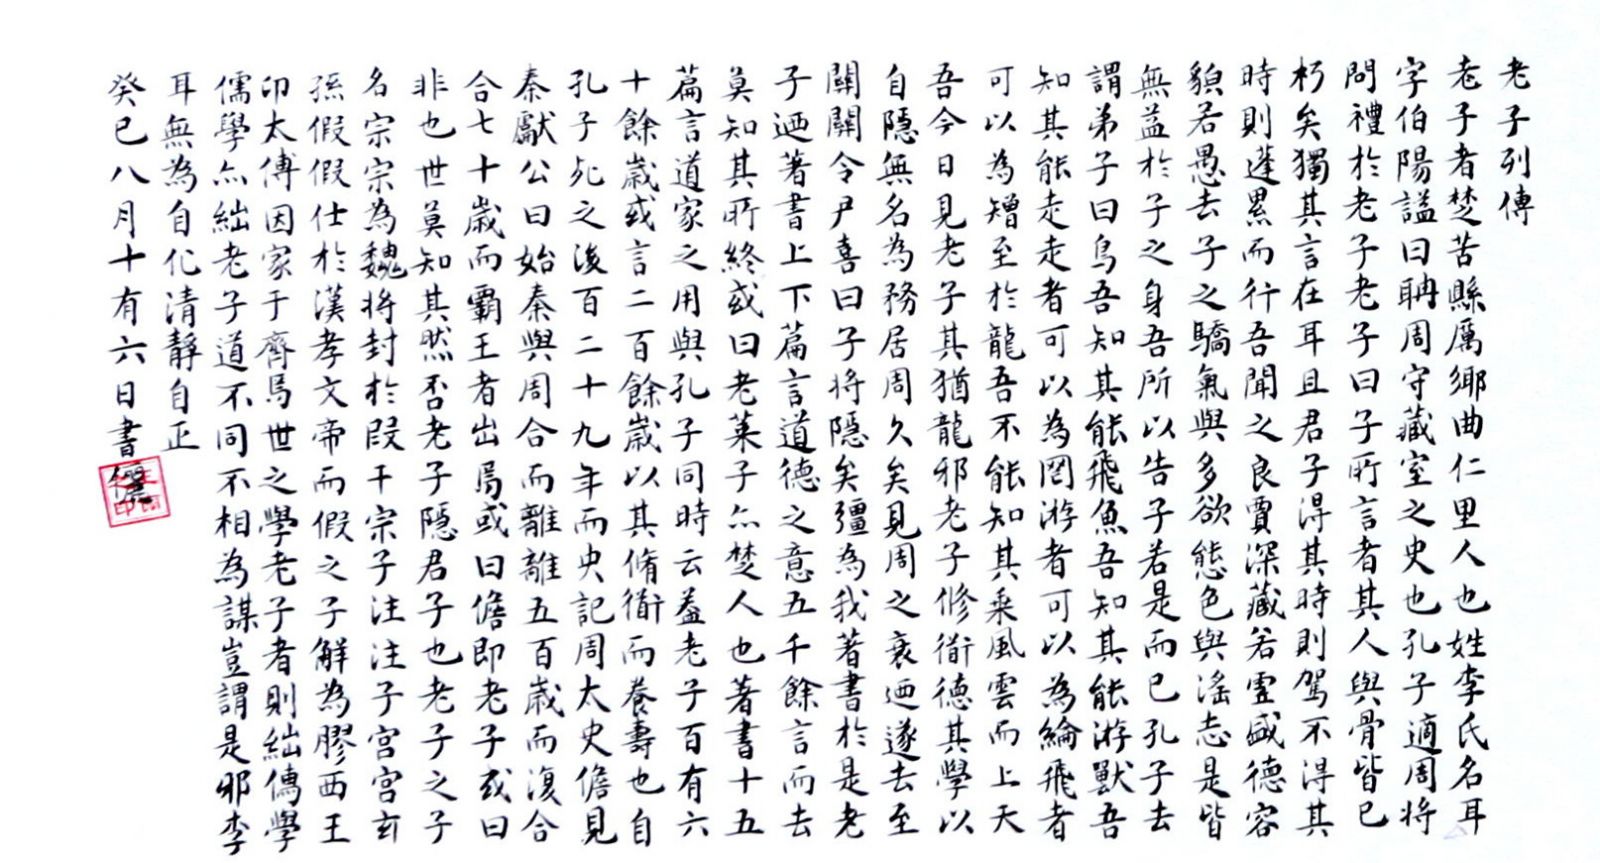 老子列傳
老子者楚苦縣厲鄉曲仁里人也姓李氏名耳
字伯陽謚曰聃周守藏室之史也孔子適周將
問禮於老子老子曰子所言者其人與骨皆已
朽矣獨其言在耳且君子得其時則駕不得其
時則蓬累而行吾聞之良賈深藏若虛盛德容
貌若愚去子之驕氣與多欲態色與淫志是皆
無益於子之身吾所以告子若是而已孔子去
謂弟子曰鳥吾知其能飛魚吾知其能游獸吾
知其能走走者可以為罔游者可以為綸飛者
可以為矰至於龍吾不能知其乘風雲而上天
吾今日見老子其猶龍邪老子修衜德其學以
自隱無名為務居周久矣見周之衰迺遂去至
關關令尹喜曰子將隱矣彊為我著書於是老
子迺著書上下篇言道德之意五千餘言而去
莫知其所終或曰老萊子亦楚人也著書十五
篇言道家之用與孔子同時云蓋老子百有六
十餘歲或言二百餘歲以其脩衜而養壽也自
孔子死之後百二十九年而史記周太史儋見
秦獻公曰始秦與周合而離離五百歲而復合
合七十歲而霸王者出焉或曰儋即老子或曰
非也世莫知其然否老子隱君子也老子之子
名宗宗為魏將封於段干宗子注注子宮宮玄
孫假假仕於漢孝文帝而假之子解為膠西王
卬太傅因家于齊焉世之學老子者則絀儒學
儒學亦絀老子道不同不相為謀豈謂是邪李
耳無為自化清靜自正
癸巳八月十有六日書